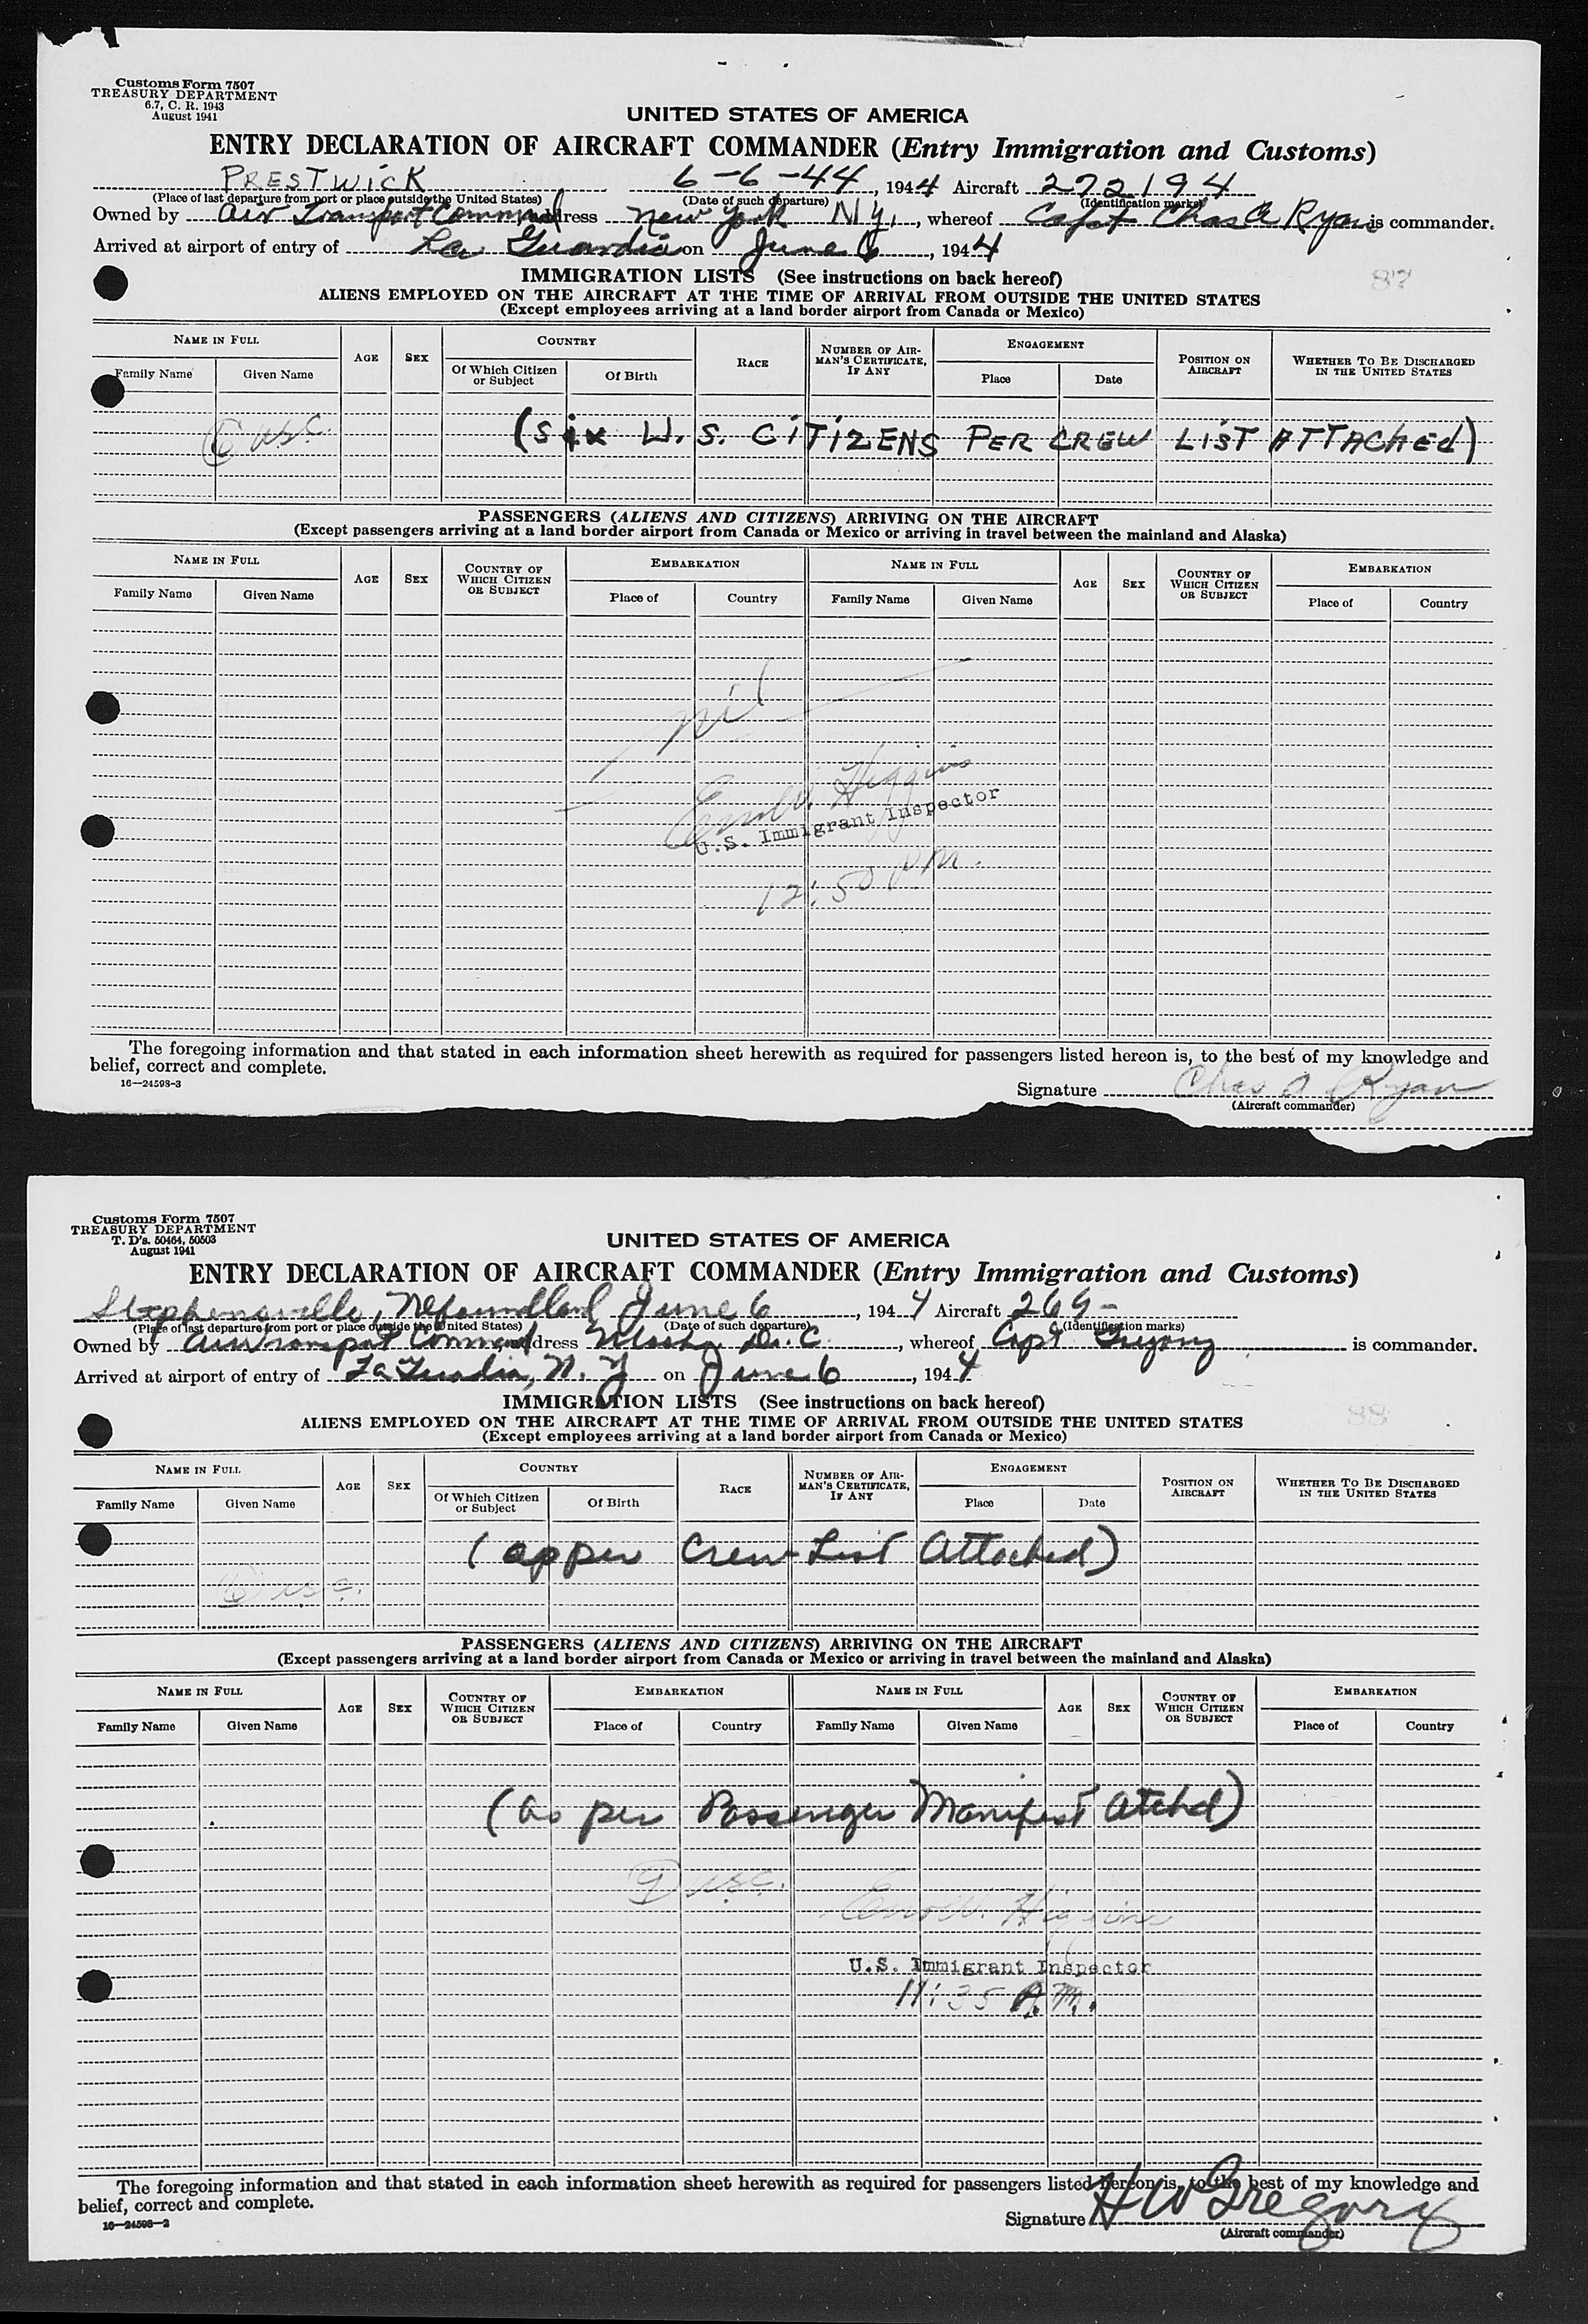 Customs Form 7507
TREASURY DEPARTMENT
6.7, C. R. 1943
August 1941
UNITED STATES OF AMERICA
ENTRY DECLARATION OF AIRCRAFT COMMANDER (Entry Immigration and Customs)
PRESTWICK 6-6-44, 1944 Aircraft 272194
(Place of last departure from port or place outside the United States) (Date of such departure) (Identification marks)
Owned by Air Transport Command Address New York N.Y., whereof Capt Chas A Ryan is commander.
Arrived at airport of entry of La Guardia on June 6, 1944
IMMIGRATION LISTS (See instructions on back hereof)
87
ALIENS EMPLOYED ON THE AIRCRAFT AT THE TIME OF ARRIVAL FROM OUTSIDE THE UNITED STATES
(Except employees arriving at a land border airport from Canada or Mexico)
NAME IN FULL AGE SEX COUNTRY RACE NUMBER OF AIRMAN'S CERTIFICATE, IF ANY ENGAGEMENT POSITION ON AIRCRAFT WHETHER TO BE DISCHARGED IN THE UNITED STATES
Family Name Given Name Of Which Citizen or Subject Of Birth Place Date
6 USC. (Six U.S. CITIZENS PER CREW LIST ATTACHED)
PASSENGERS (ALIENS AND CITIZENS) ARRIVING ON THE AIRCRAFT
(Except passengers arriving at a land border airport from Canada or Mexico or arriving in travel between the mainland and Alaska)
NAME IN FULL AGE SEX COUNTRY OF WHICH CITIZEN OR SUBJECT EMBARKATION NAME IN FULL AGE SEX COUNTRY OF WHICH CITIZEN OR SUBJECT EMBARKATION
Family Name Given Name Place of Country Family Name Given Name Place of Country
nil
Higgins
U.S. Immigrant Inspector
12:50 PM.
The foregoing information and that stated in each information sheet herewith as required for passengers listed hereon is, to the best of my knowledge and
belief, correct and complete.
16—24598-3
Signature Chas A Ryan
(Aircraft commander)
Customs Form 7507
TREASURY DEPARTMENT
T. D's. 50464, 50503
August 1941
UNITED STATES OF AMERICA
ENTRY DECLARATION OF AIRCRAFT COMMANDER (Entry Immigration and Customs)
Stephensville, Nfoundland June 6, 1944 Aircraft 269-
(Place of last departure from port or place outside the United States) (Date of such departure) (Identification marks)
Owned by Air Transport Command Address Wash. D.C., whereof Capt Gregory is commander.
Arrived at airport of entry of La Guadia, N.Y on June 6, 1944
IMMIGRATION LISTS (See instructions on back hereof)
88
ALIENS EMPLOYED ON THE AIRCRAFT AT THE TIME OF ARRIVAL FROM OUTSIDE THE UNITED STATES
(Except employees arriving at a land border airport from Canada or Mexico)
NAME IN FULL AGE SEX COUNTRY RACE NUMBER OF AIRMAN'S CERTIFICATE, IF ANY ENGAGEMENT POSITION ON AIRCRAFT WHETHER TO BE DISCHARGED IN THE UNITED STATES
Family Name Given Name Of Which Citizen or Subject Of Birth Place Date
(as per Crew List Attached)
6 usc.
PASSENGERS (ALIENS AND CITIZENS) ARRIVING ON THE AIRCRAFT
(Except passengers arriving at a land border airport from Canada or Mexico or arriving in travel between the mainland and Alaska)
NAME IN FULL AGE SEX COUNTRY OF WHICH CITIZEN OR SUBJECT EMBARKATION NAME IN FULL AGE SEX COUNTRY OF WHICH CITIZEN OR SUBJECT EMBARKATION
Family Name Given Name Place of Country Family Name Given Name Place of Country
(as per Passenger Manifest Atchd)
9 usc.
Higgins
U.S. Immigrant Inspector
11:35 A.M.
The foregoing information and that stated in each information sheet herewith as required for passengers listed hereon is, to the best of my knowledge and
belief, correct and complete.
16—24598-2
Signature H W Gregory
(Aircraft commander)